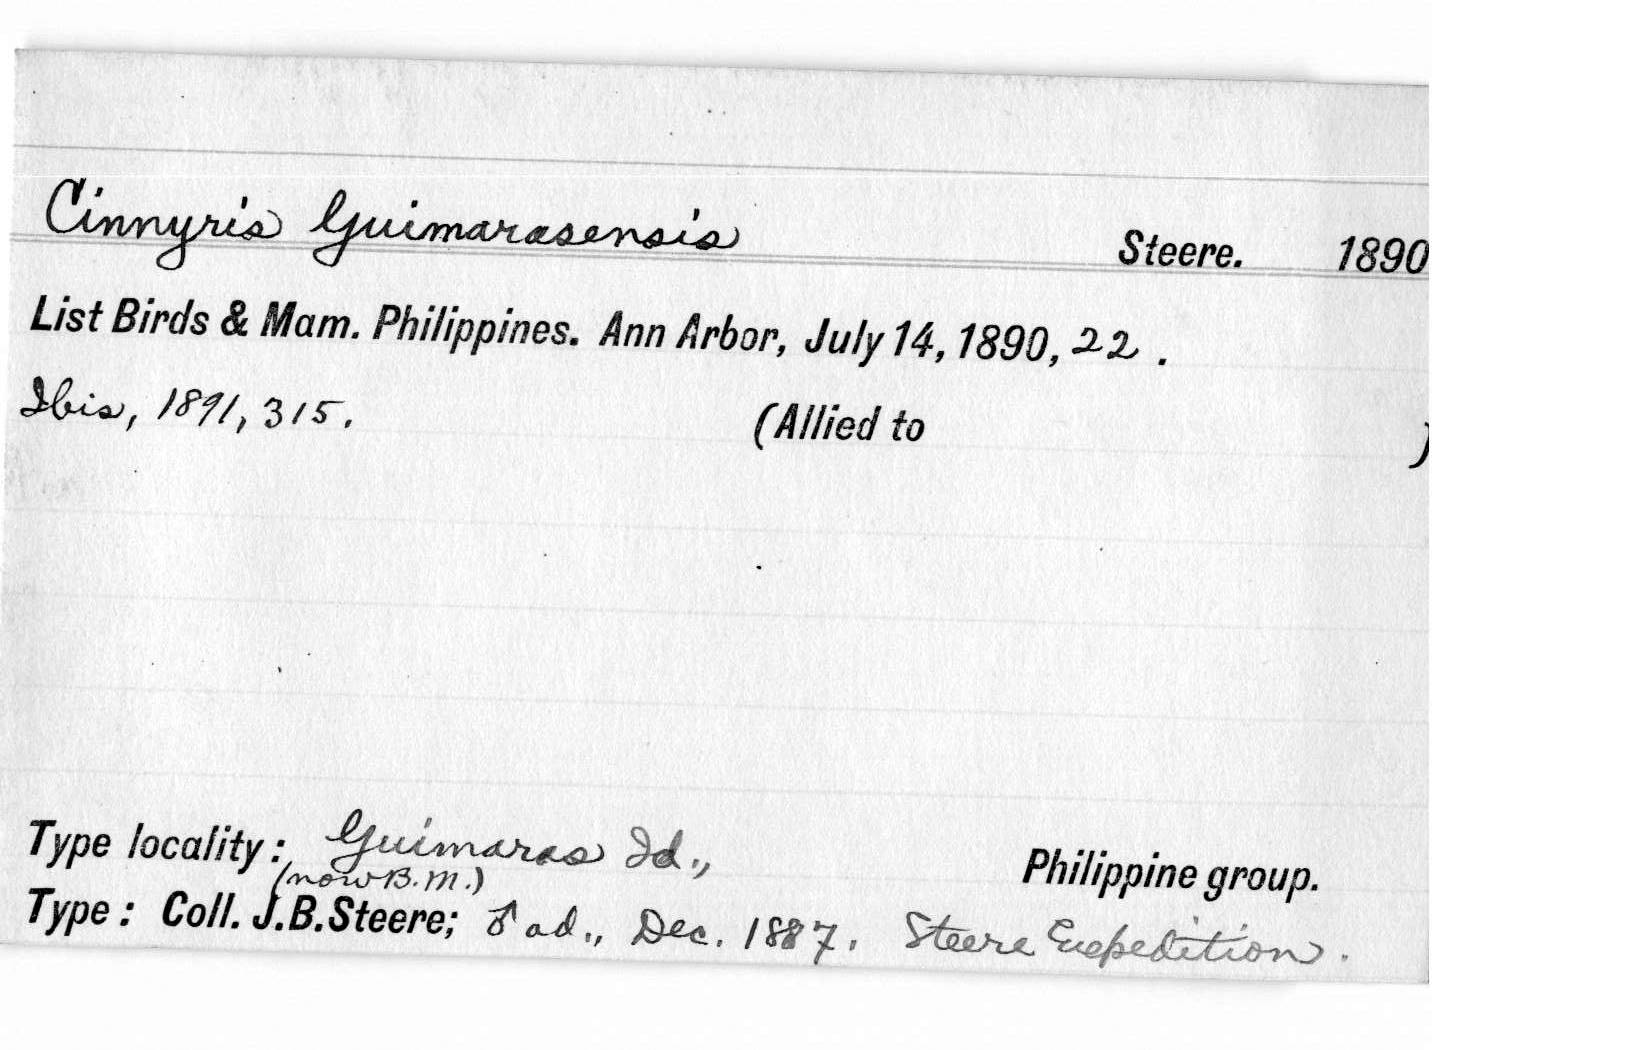 Cinnyris Guimarasensis Steere. 1890
List Birds & Mam. Philippines. Ann Arbor, July 14, 1890, 22.
Ibis, 1891, 315. (Allied to )
Type locality: Guimaras Id., Philippine group.
(now B.M.)
Type: Coll. J.B.Steere; ♂ ad., Dec. 1887. Steere Expedition.